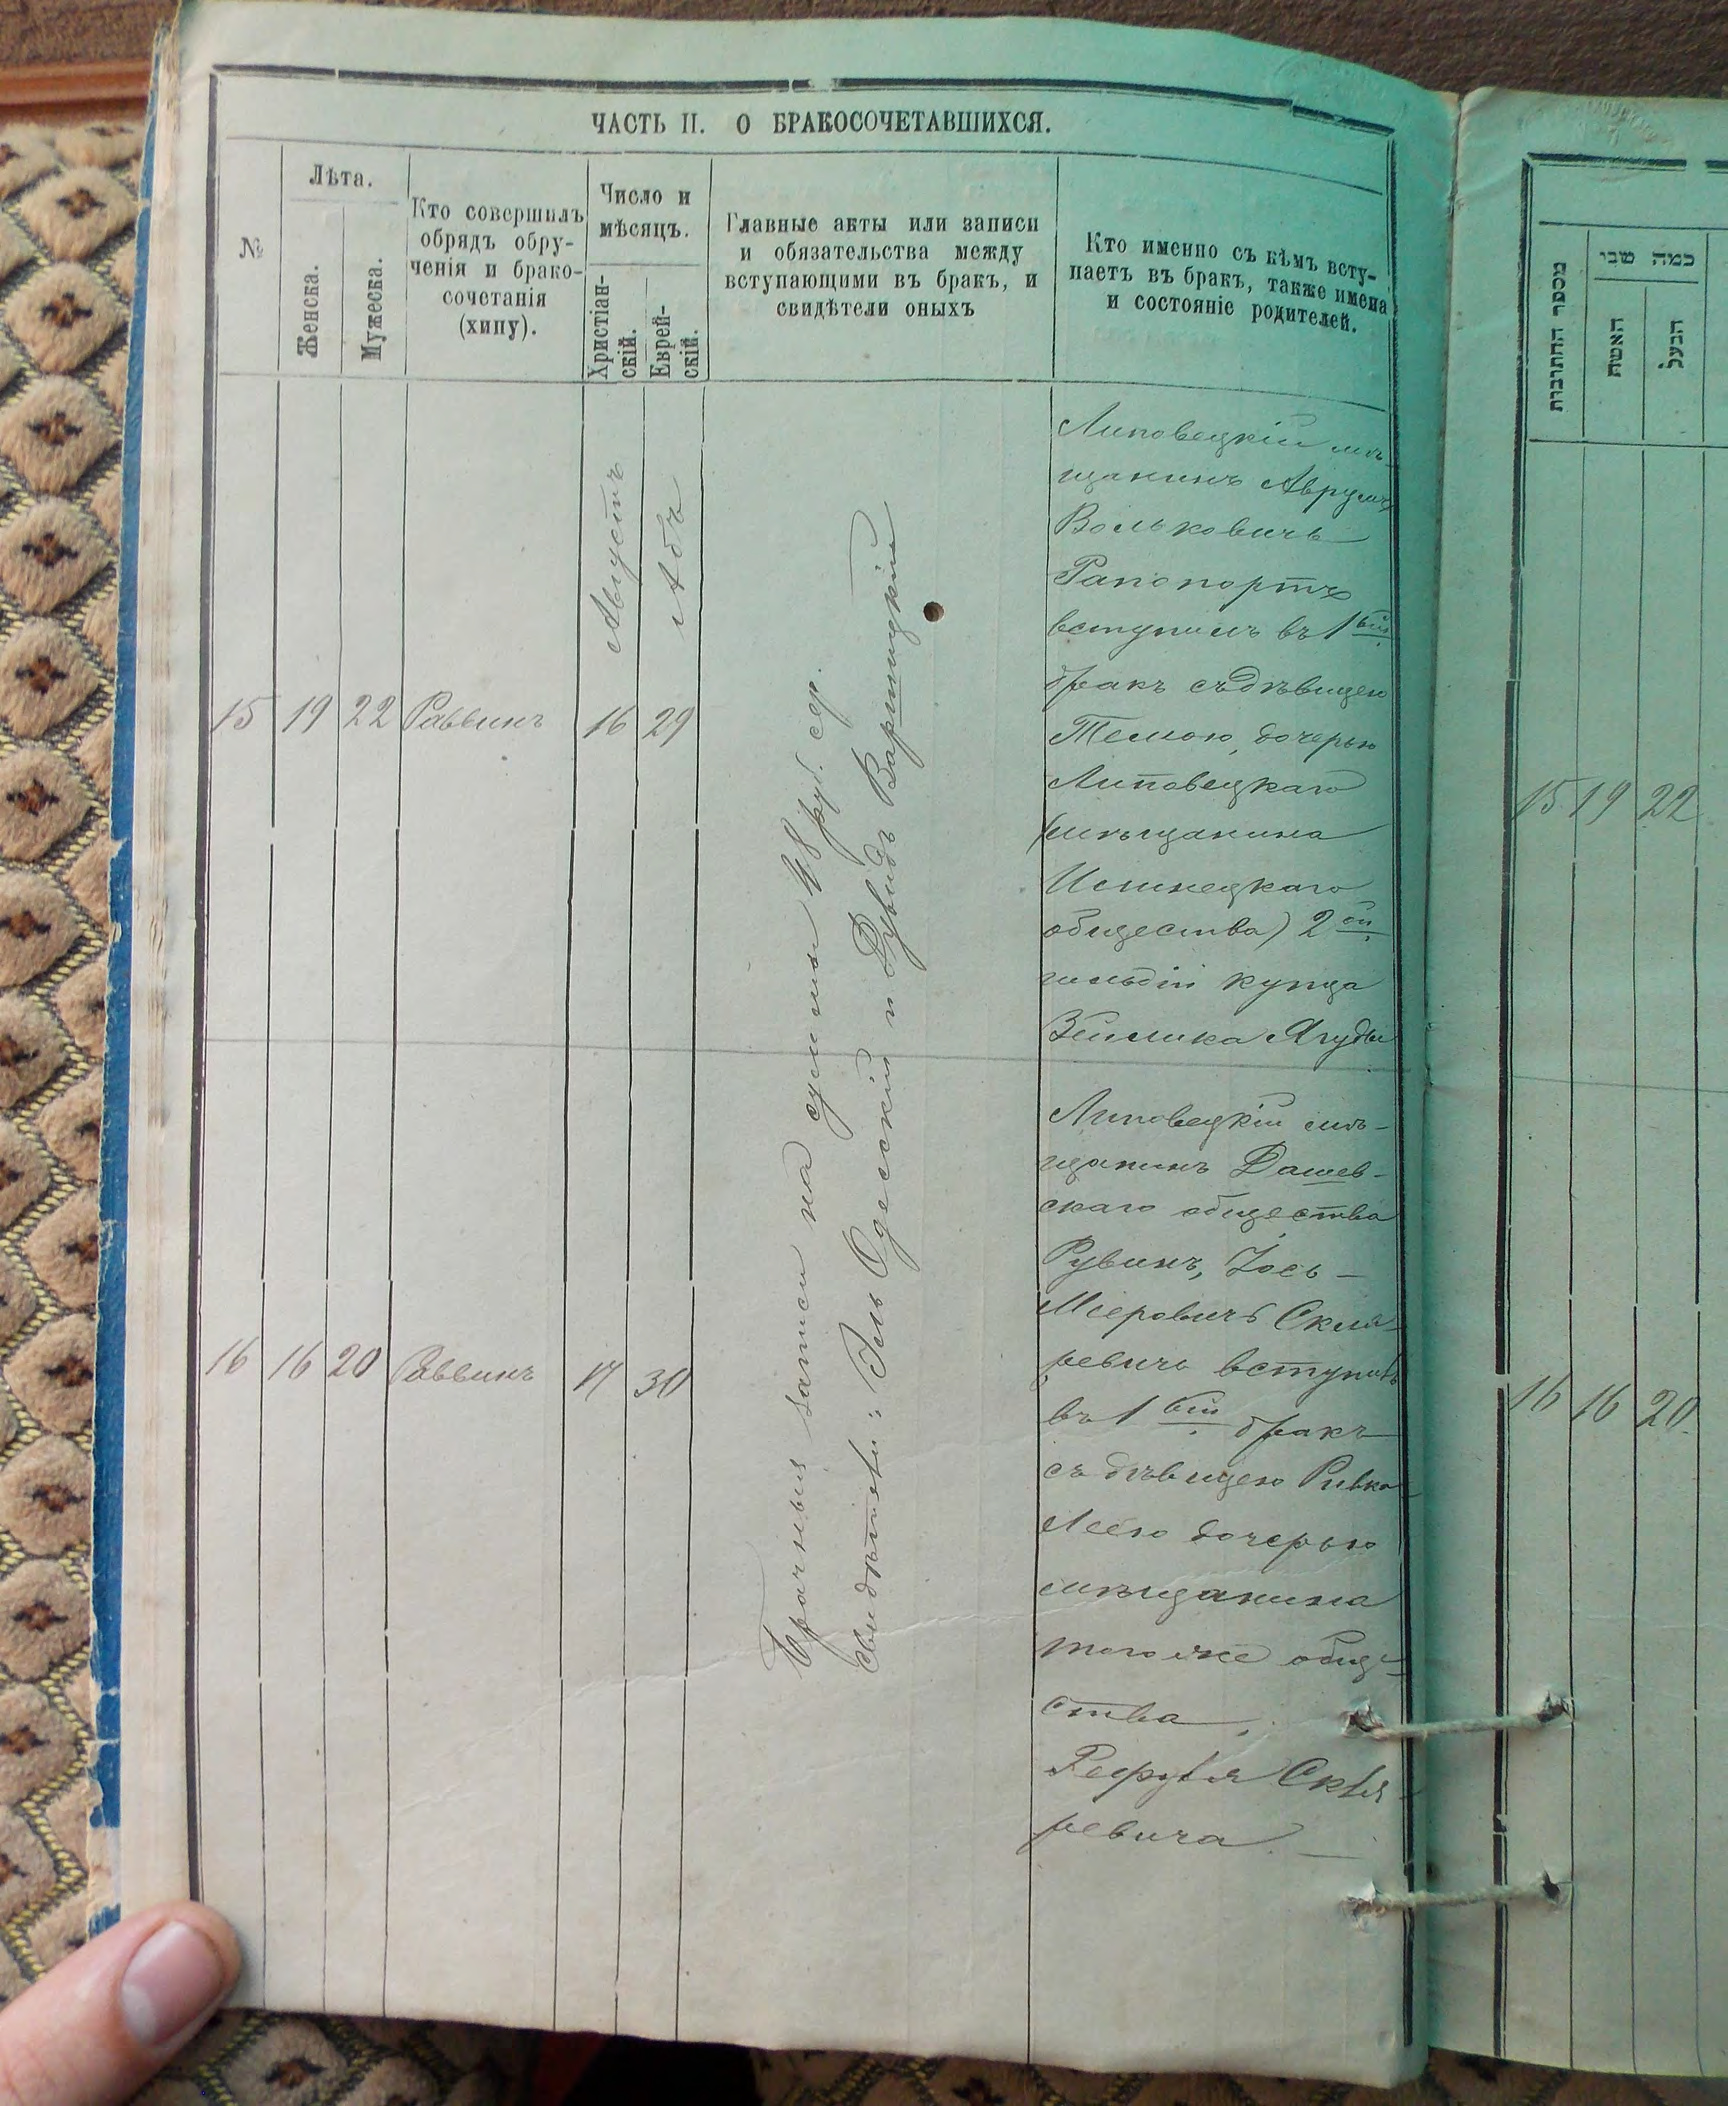 ЧАСТЬ II. О БРАКОСОЧЕТАВШИХСЯ.
№
Лѣта.
Женска.
Мужеска.
Кто совершилъ
обрядъ обру-
ченія и брако-
сочетанія
(хипу).
Число и
мѣсяцъ.
Христіан-
скій.
Еврей-
скій.
Главные акты или записи
и обязательства между
вступающими въ бракъ, и
свидѣтели оныхъ
Кто именно съ кѣмъ всту-
паетъ въ бракъ, также имена
и состояніе родителей.
Августъ
Абъ
15 19 22 Раввинъ 16 29
Брачныя записи на суммы 48 руб. сер.
свидѣтели: Гль Одесскій и Дувидъ Варшицкій
Липовецкій мѣ-
щанинъ Аврумъ
Вольковичъ
Рапопортъ
вступилъ въ 1ый
бракъ съ дѣвицею
Темою, дочерью
Липовецкаго
(мѣщанина
Ильинецкаго
общества) 2ой
гильдіи купца
Зейлика Ягуды
16 16 20 Раввинъ 17 30
Липовецкій мѣ-
щанинъ Дашев-
скаго общества
Рувинъ, Іось-
Меровичъ Скля-
ревичъ вступилъ
въ 1ый бракъ
съ дѣвицею Ривка
Леею дочерью
мѣщанина
того же обще-
ства,
Скля-
ревича.
מספר החתונות
כמה שני
האשה
הבעל
15 19 22
16 16 20